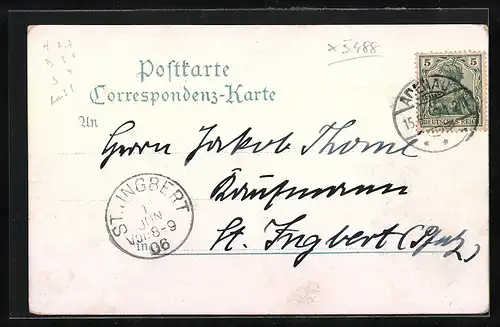 x 5.488
Postkarte
Correspondenz-Karte
An
5 5
DEUTSCHES REICH
ADENAU
15.
Herrn Jakob Thome
Kaufmann
St. Ingbert (Pfalz)
ST. INGBERT
1
JUN
Vor. 8-9
06